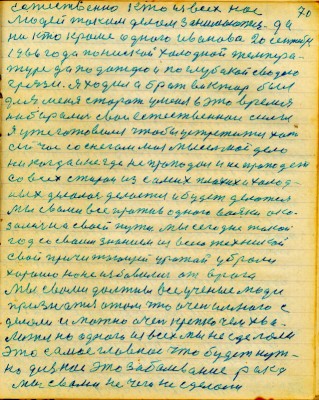 70
естественно кто из всех нас
людей таким делом занимается. да
ни кто кроме одного Иванова 20 сентября
1966 года по ниской холодной темпера-
туре да по дождю и по глубокой
грязи. Я ходил а брат виктор был
для меня сторож умен в это время
набирались свои естественные силы
я уже готовился чтобы встретится хотя
сейчас со снегом моя мысль мое дело
никогда нигде не пропадал и не пропадет
со всех сторон из самих плохих и холод-
ных делалось делается и будет делатся
мы своими все против одного войны ока-
зались на своей пути мы сегодня такой
год со своим знанием из всею техникой
свой причитающий урожай убрали
хорошо но не избавились от врага
Мы своими должны все ученые люди
признатся о том что очень много с
делали и можно очень крепко чем хва-
лится но одного из всех мы не сделали
это самое главное что будет нуж-
но для нас это заболевание рака
мы своими не чего не сделали